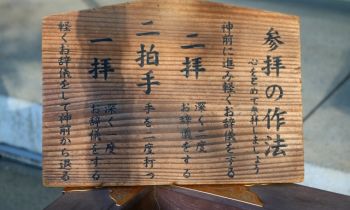 参拝の作法
心をこめて参拝しましょう
神前に進み軽くお辞儀をする
二拝
深く二度
お辞儀をする
二拍手
手を二度打つ
一拝
深く一度
お辞儀をする
軽くお辞儀をして神前から退る